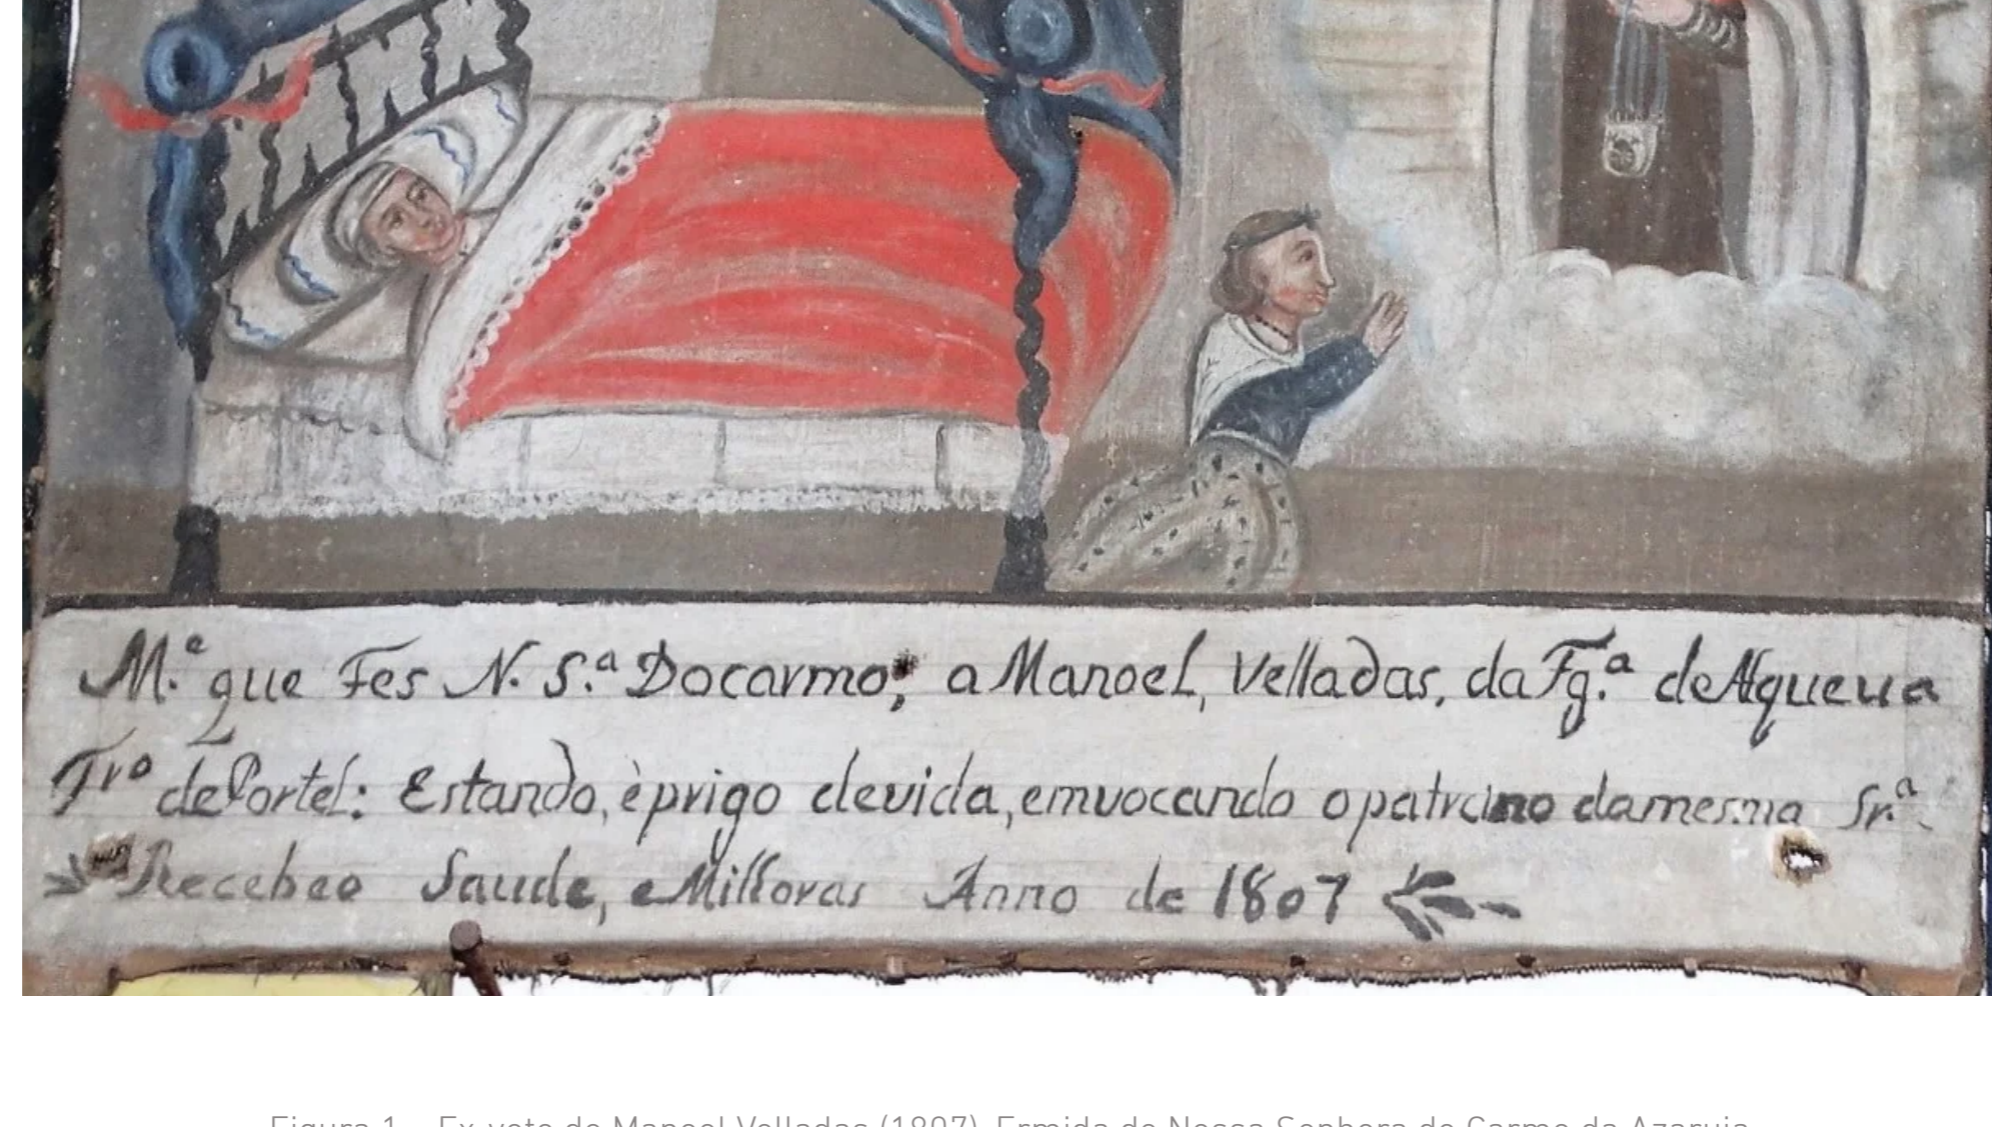 M.e que Fes N. S.a Docarmo, a Manoel, Velladas, da Fg.a de Aqueua
Tro de Portel: Estando, è prigo devida, emvocando o patrcino damesma Sr.a
Recebeo Saude, e Milloras Anno de 1807
Figura 1 – Ex-voto de Manoel Velladas (1807), Ermida de Nossa Senhora do Carmo da Azaruja